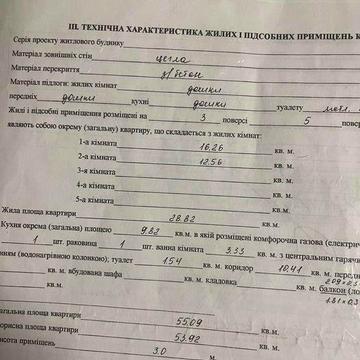 III. ТЕХНІЧНА ХАРАКТЕРИСТИКА ЖИЛИХ І ПІДСОБНИХ ПРИМІЩЕНЬ К
Серія проєкту житлового будинку
Матеріал зовнішніх стін цегла
Матеріал перекриття з/бетон
Матеріал підлоги: жилих кімнат дошки
передніх дошки кухні дошки туалету
Жилі і підсобні приміщення розміщені на 3 поверсі 5 повер
являють собою окрему (загальну) квартиру, що складається з жилих кімнат:
1-а кімната 16,26 кв. м.
2-а кімната 12,56 кв. м.
3-я кімната кв. м.
4-а кімната кв. м.
5-а кімната кв. м.
Жила площа квартири 28,82 кв. м.
Кухня окрема (загальна) площею 9,82 кв. м. в якій розміщені комфорочна газова (електрич
1 шт. раковина 1 шт. ванна кімната 3,33 кв. м. з центральним гаряч
нням (водогрівною колонкою); туалет 1,54 кв. м. коридор 10,41 кв. м. передн
кв. м. вбудована шафа кв. м. кладовка кв. м. балкон (ло
загальна площа квартири 55,09 кв.м.
орисна площа квартири 53,92 кв.м.
исота приміщень 3,0 м.